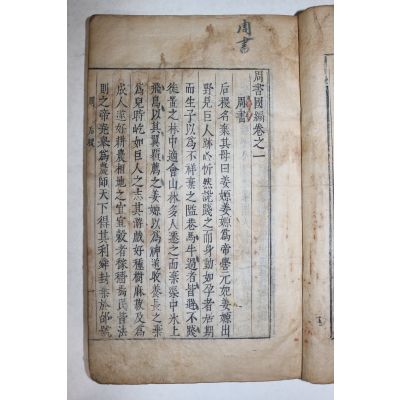 周書
周書國編卷之一
周書
后稷名棄其母曰姜嫄姜嫄爲帝嚳元妃姜嫄出
野見巨人跡心忻然說踐之而身動如孕者居期
而生子以爲不祥棄之隘巷馬牛過者皆避不踐
徙置之林中適會山林多人遷之而棄渠中氷上
飛鳥以其翼覆薦之姜嫄以爲神遂收養長之棄
爲兒時屹如巨人之志其游戲好種樹麻菽及爲
成人遂好耕農相地之宜宜穀者稼穡焉民皆法
則之帝堯擧爲農師天下得其利舜封棄於邰號